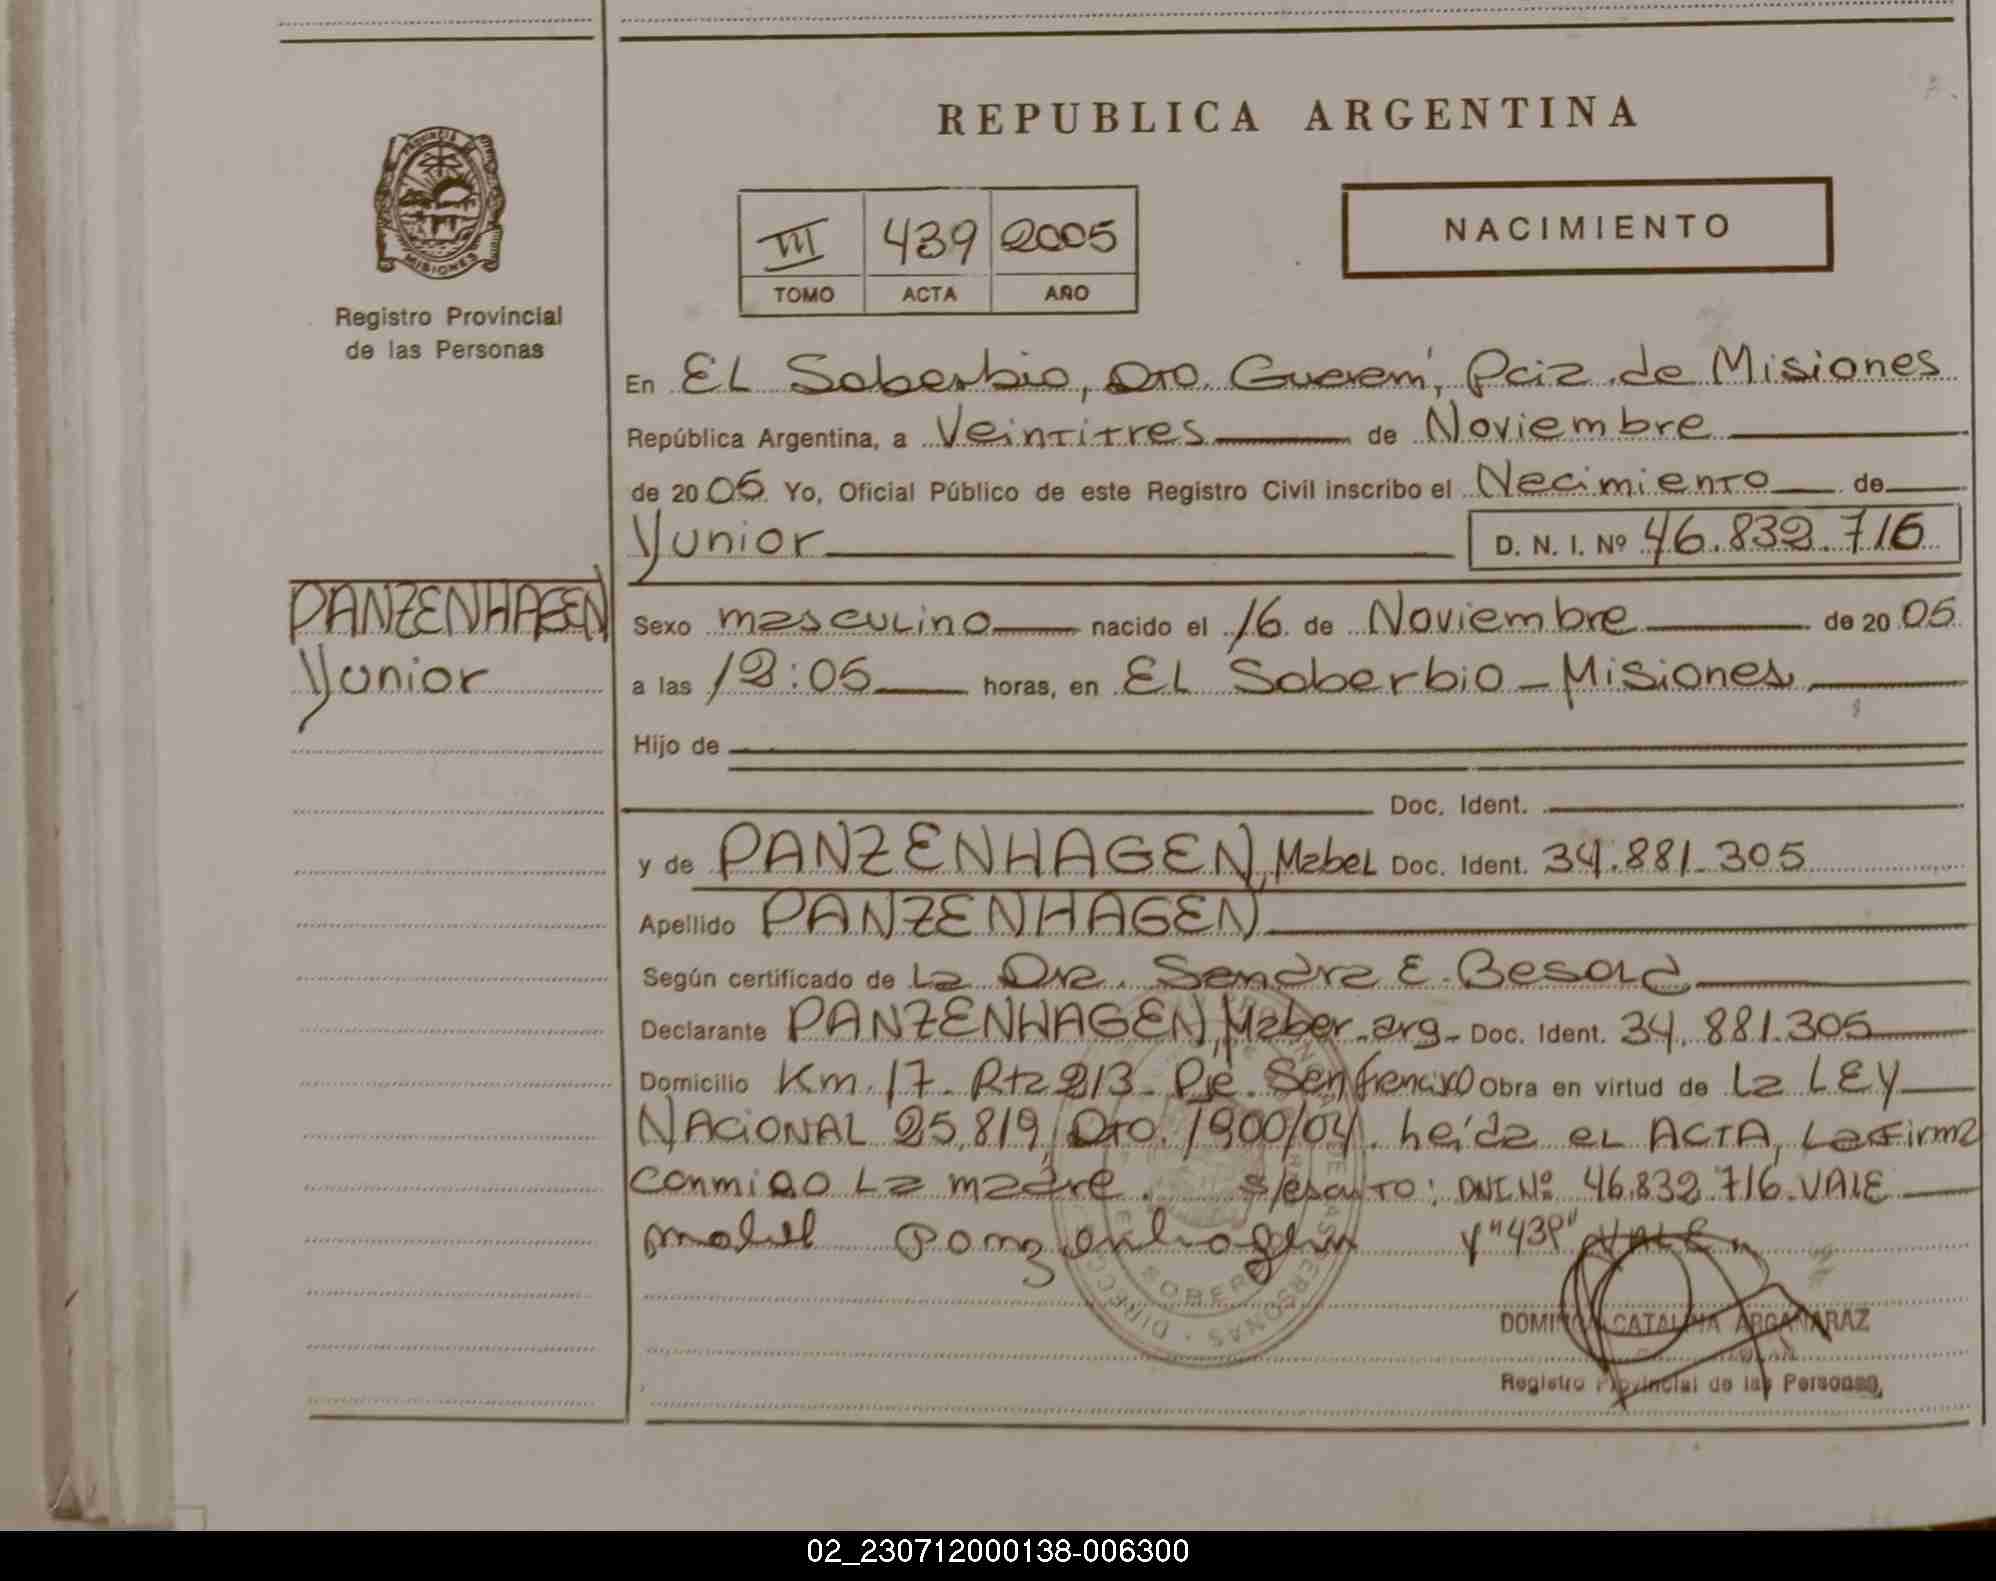 REPUBLICA ARGENTINA
PROVINCIA DE
MISIONES
Registro Provincial
de las Personas
III 439 2005
TOMO ACTA AÑO
NACIMIENTO
En EL Soberbio, Dto. Guaraní, Pcia. de Misiones
República Argentina, a Veintitres de Noviembre
de 2005 Yo, Oficial Público de este Registro Civil inscribo el Nacimiento de
Yunior D. N. I. Nº 46.832.716
PANZENHAGEN
Yunior
Sexo masculino nacido el 16 de Noviembre de 2005
a las 12:05 horas, en EL Soberbio - Misiones
Hijo de
Doc. Ident.
y de PANZENHAGEN, Mabel Doc. Ident. 34.881.305
Apellido PANZENHAGEN
Según certificado de La Dra. Sandra E. Besold
Declarante PANZENHAGEN, Mabel - arg - Doc. Ident. 34.881.305
Domicilio Km. 17 - Rta 213 - Pje. San Francisco Obra en virtud de La LEY
NACIONAL 25.819, Dto. 1900/04. Leída el ACTA, La firma
conmigo La madre. s/escrito: DNI Nº 46.832.716. VALE
Mabel Panzenhagen y "439" VALE
DIRECC PERSONAS SOBER
DOMINGA CATALINA ARGAÑARAZ
Registro Provincial de las Personas
02_230712000138-006300